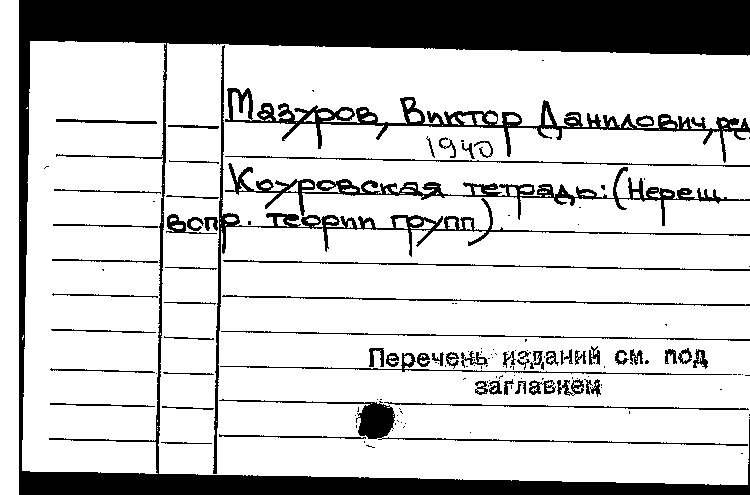 Мазуров, Виктор Данилович, ред
1940
Коуровская тетрадь: (Нереш.
вопр. теории групп).
Перечень изданий см. под
заглавием